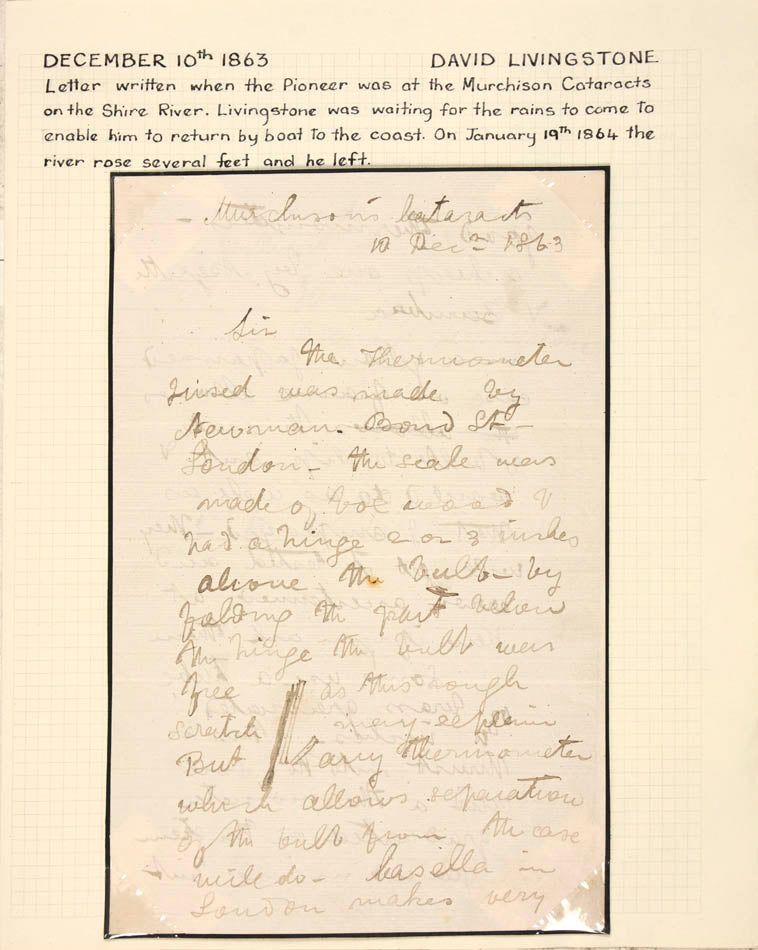 DECEMBER 10th 1863 DAVID LIVINGSTONE
Letter written when the Pioneer was at the Murchison Cataracts
on the Shire River. Livingstone was waiting for the rains to come to
enable him to return by boat to the coast. On January 19th 1864 the
river rose several feet and he left.
Murchison's Cataracts
10 Decr 1863
Sir
The Thermometer
I used was made by
Newman. Bond St
London - The scale was
made of box wood &
had a hinge 2 or 3 inches
above the bulb - by
folding the part below
the hinge the bulb was
free as this rough
scratch may explain
But any Thermometer
which allows separation
of the bulb from the case
will do - Casella in
London makes very